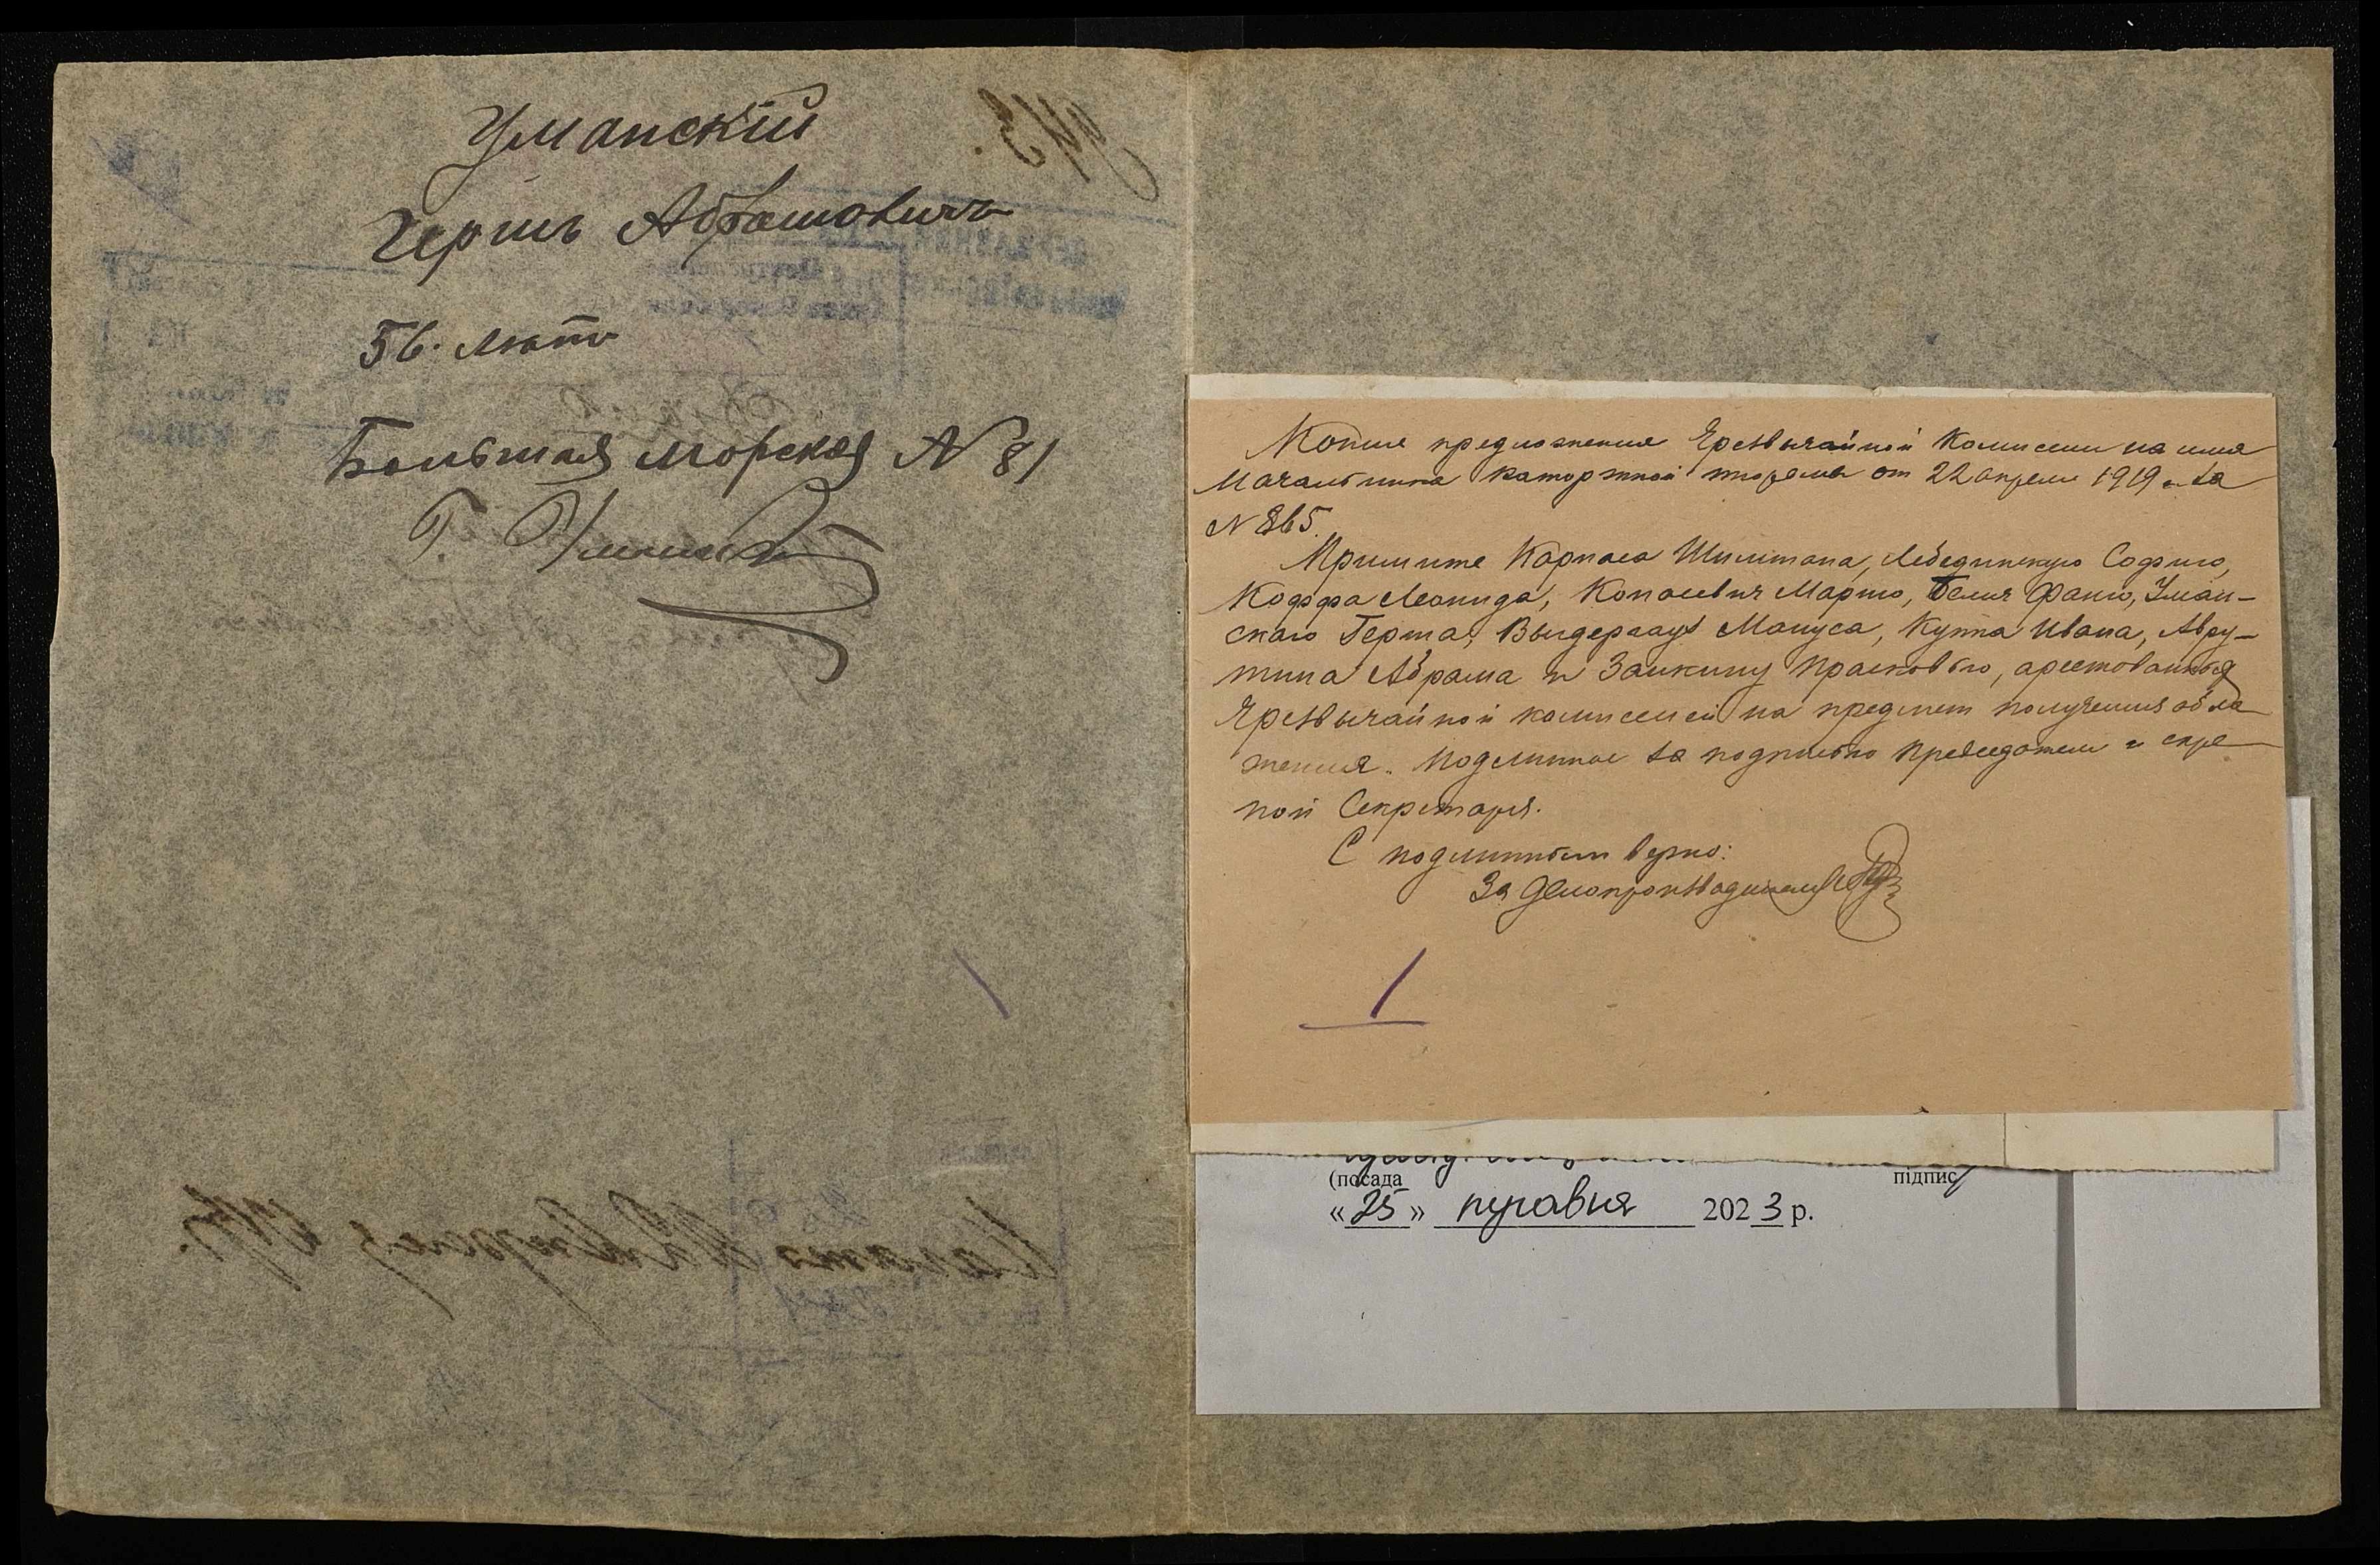 Уманскій
Гершъ Абрамовичъ
56. лѣтъ
Большая Морская № 81
Г. Уманскій
Копия предложения Чрезвычайной Комиссии на имя
Начальника каторжной тюрьмы от 22 апреля 1919 г. за
№ 865.
Примите Карпаса Шилмана, Лебединскую Софию,
Коффа Леонида, Копалевич Марию, Белич Фаню, Уман-
скаго Герша, Выдергауз Мануса, Куппа Ивана, Авру-
тина Абрама и Заикину Прасковью, арестованных
Чрезвычайной комиссией на предмет получения обла-
жения. Подлинное за подписью Председателя и скре-
пой Секретаря.
С подлинным верно:
За Делопроизводителя
1
(посада
підпис
«25» травня 2023 р.